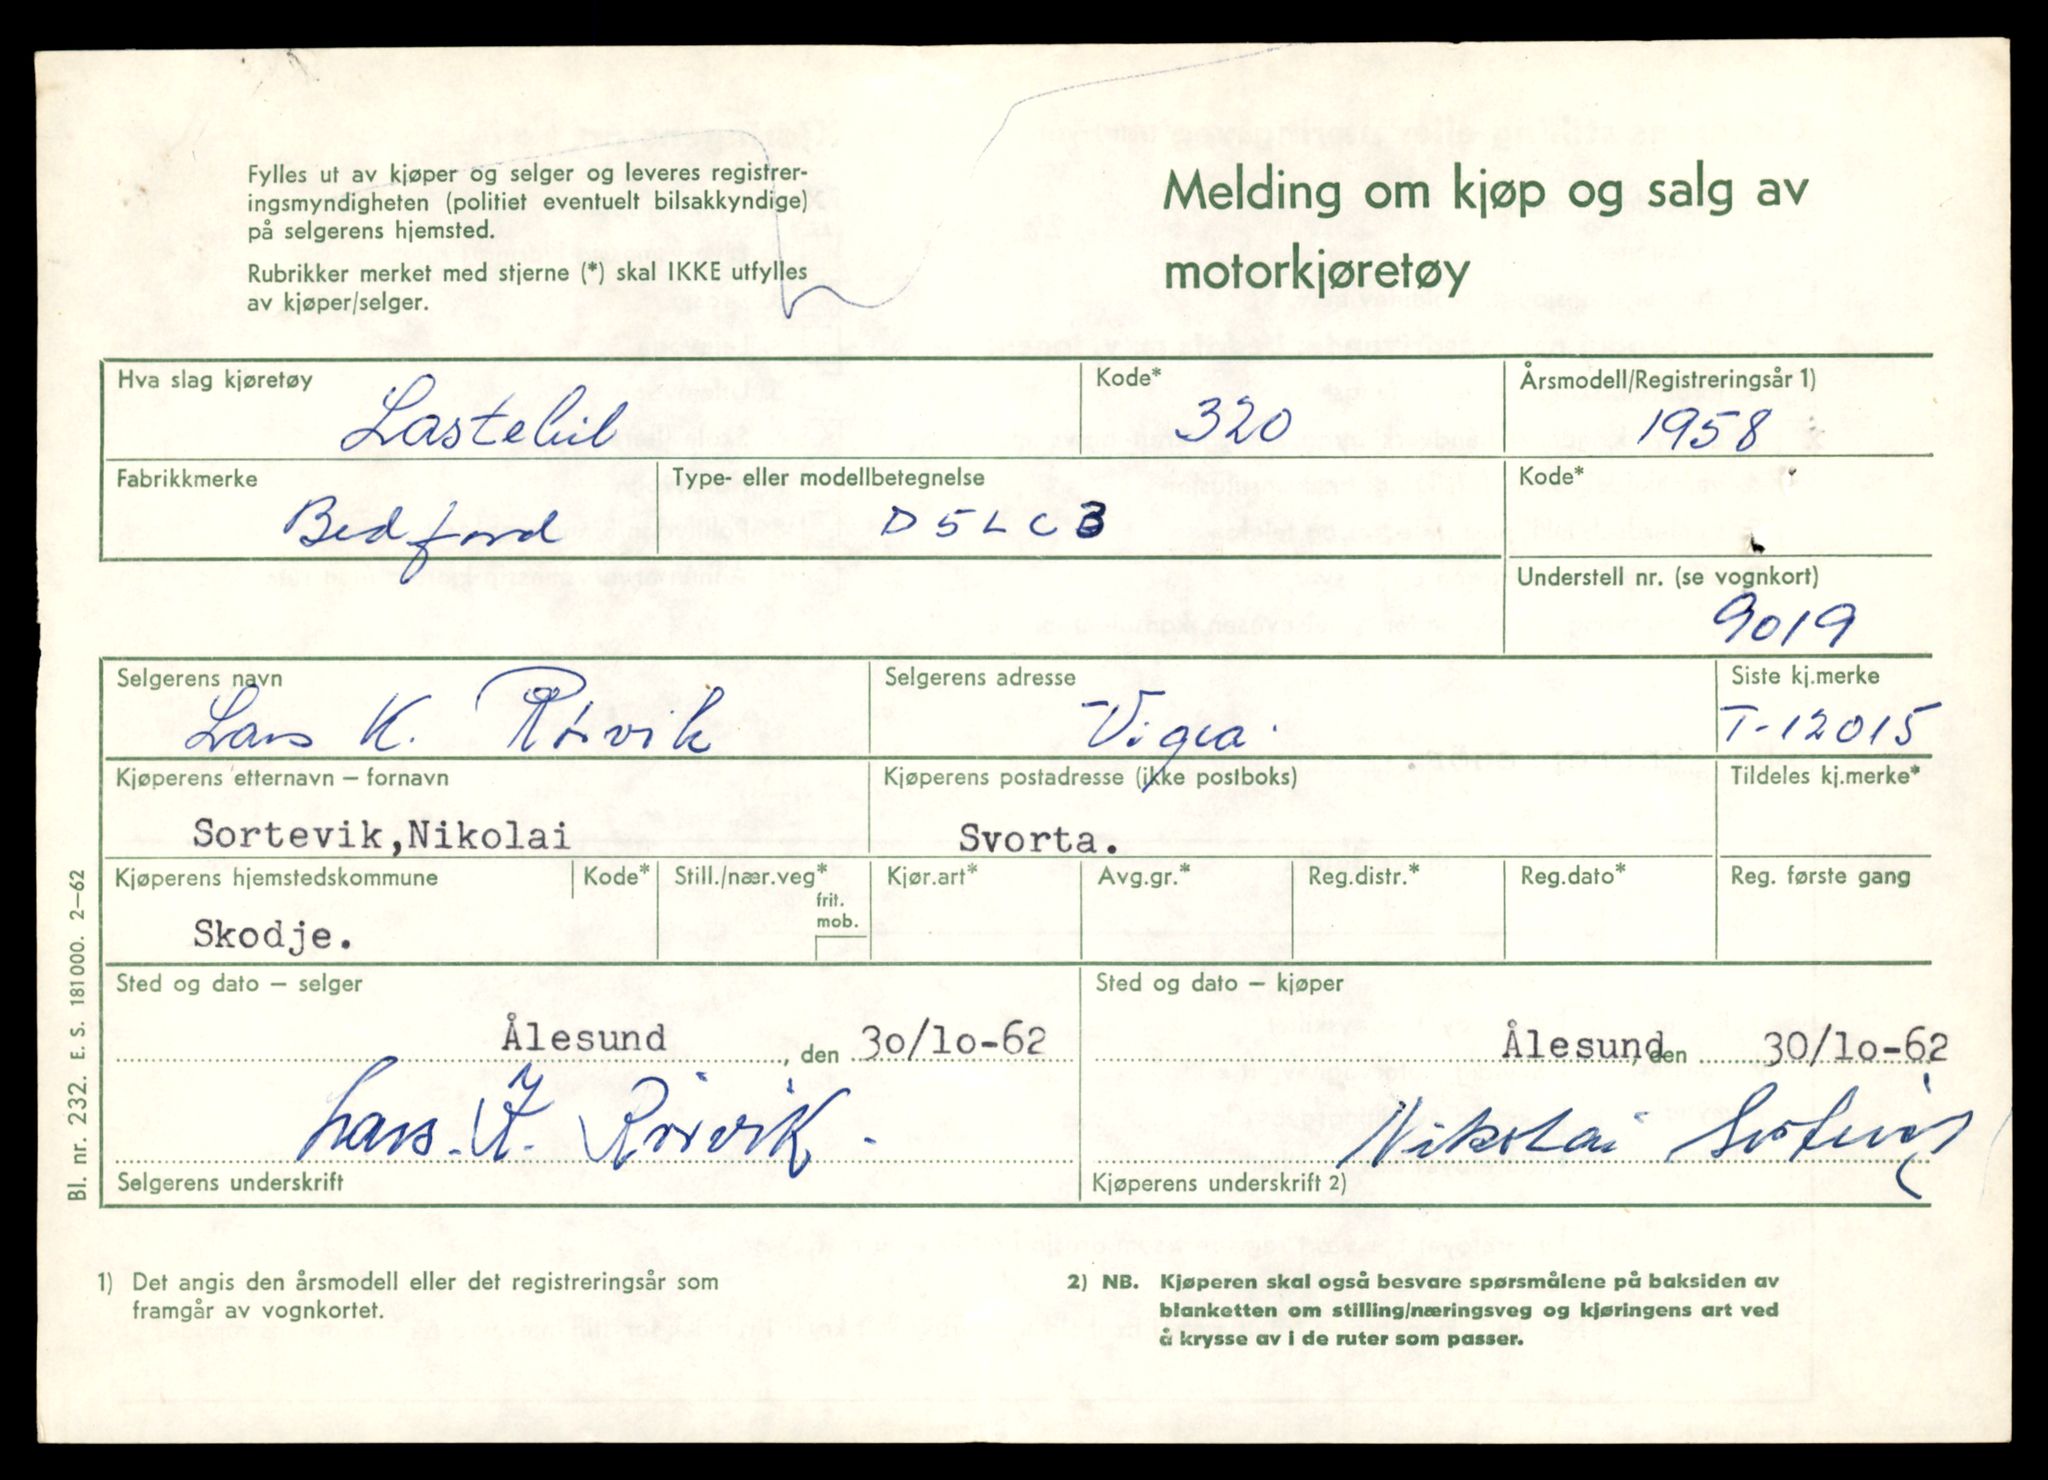 Fylles ut av kjøper og selger og leveres registrer-
ingsmyndigheten (politiet eventuelt bilsakkyndige)
på selgerens hjemsted.
Rubrikker merket med stjerne (*) skal IKKE utfylles
av kjøper/selger.
Melding om kjøp og salg av
motorkjøretøy
Hva slag kjøretøy Kode* Årsmodell/Registreringsår 1)
Lastebil 320 1958
Fabrikkmerke Type- eller modellbetegnelse Kode*
Bedford D5LCB
Understell nr. (se vognkort)
9019
Selgerens navn Selgerens adresse Siste kj.merke
Lars K. Rørvik Vigra. T-12015
Kjøperens etternavn – fornavn Kjøperens postadresse (ikke postboks) Tildeles kj.merke*
Sortevik,Nikolai Svorta.
Kjøperens hjemstedskommune Kode* Still./nær.veg* Kjør.art* Avg.gr.* Reg.distr.* Reg.dato* Reg. første gang
frit.
mob.
Skodje.
Sted og dato – selger Sted og dato – kjøper
Ålesund , den 30/10-62 Ålesund, den 30/10-62
Lars. K. Rörvik. Nikolai Sortevik
Selgerens underskrift Kjøperens underskrift 2)
1) Det angis den årsmodell eller det registreringsår som
framgår av vognkortet.
2) NB. Kjøperen skal også besvare spørsmålene på baksiden av
blanketten om stilling/næringsveg og kjøringens art ved
å krysse av i de ruter som passer.
Bl. nr. 232. E. S. 181000. 2–62